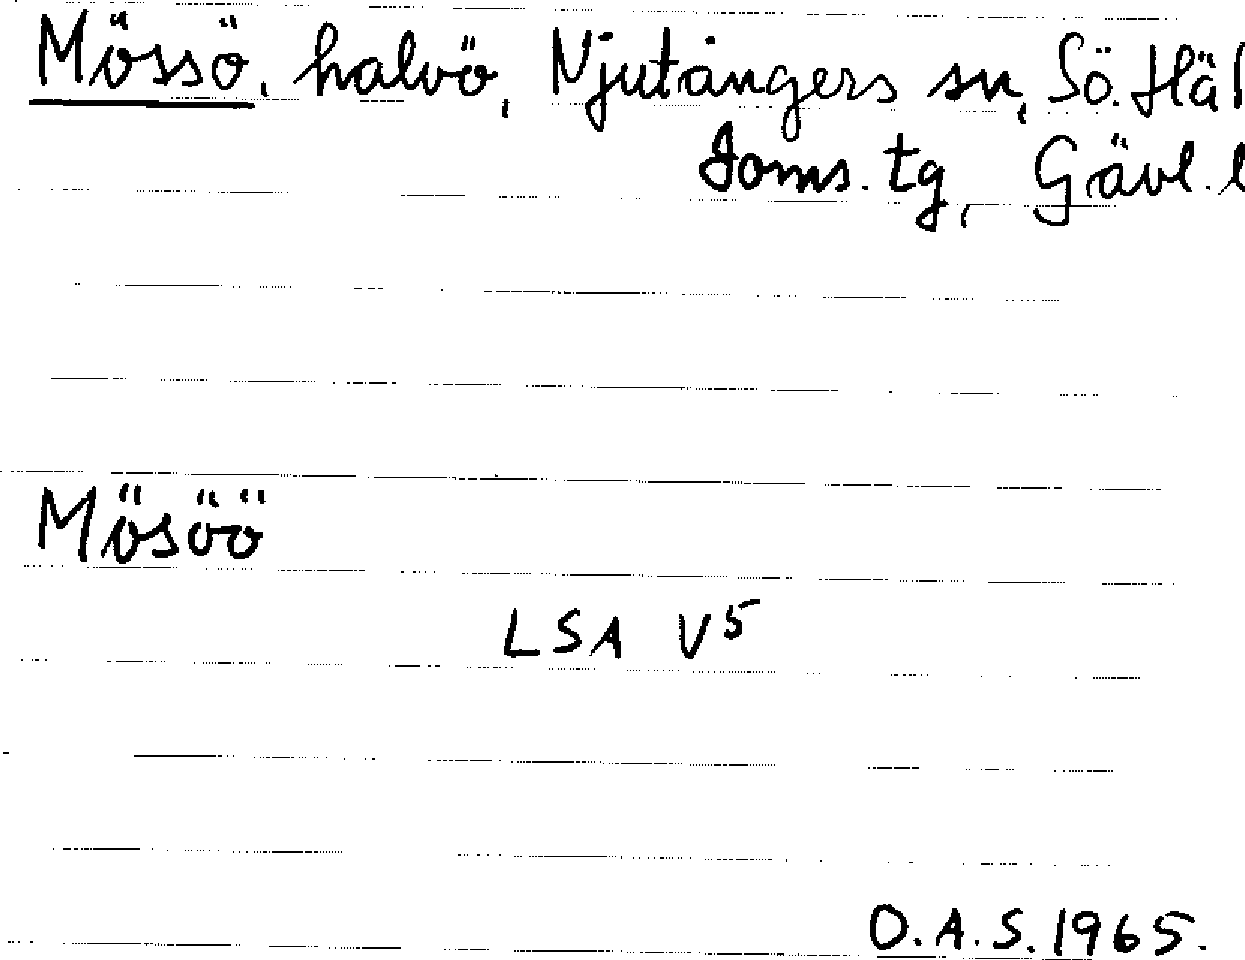 Mössö, halvö, Njutångers sn, Sö. Häl
Doms. tg, Gävl. l
Mösöö
LSA V5
O.A.S. 1965.